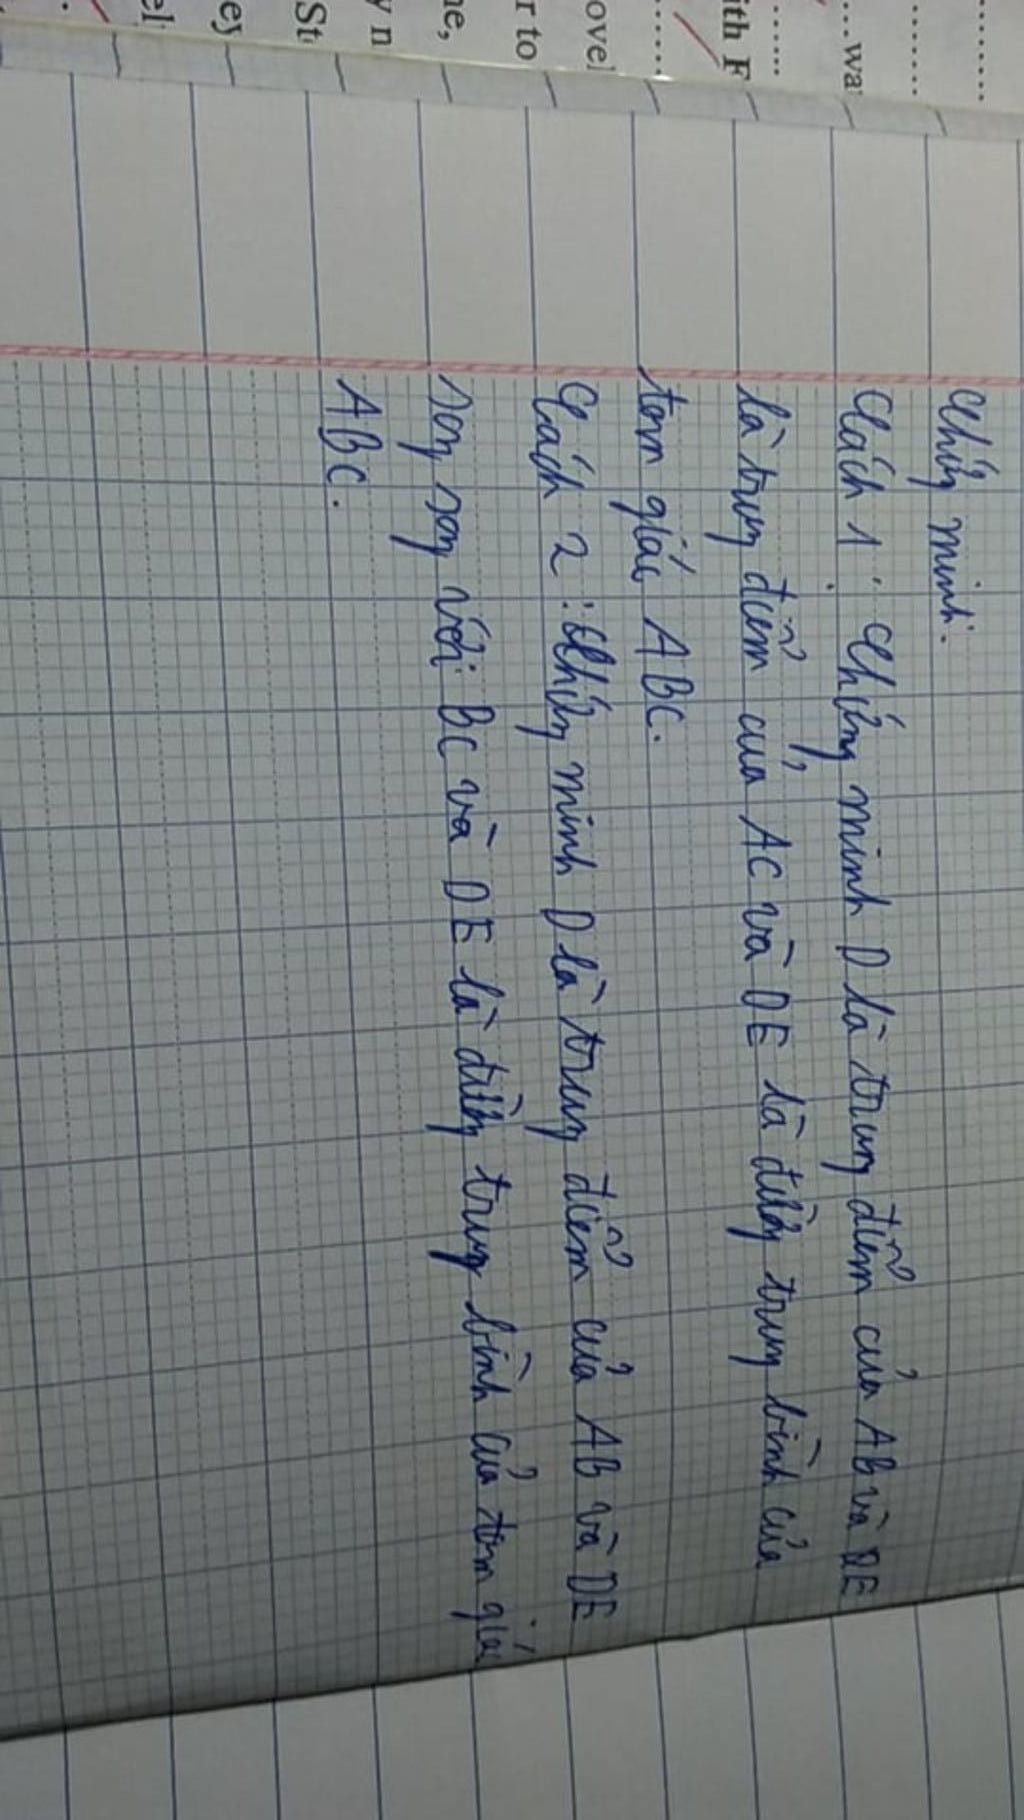 Chứng minh:
Cách 1: Chứng minh D là trung điểm của AB và DE
là trung điểm của AC và DE là đường trung bình của
tam giác ABC.
Cách 2: Chứng minh D là trung điểm của AB và DE
song song với BC và DE là đường trung bình của tam giác
ABC.
wa
ith F
ove
r to
ne,
y n
St
ey
el